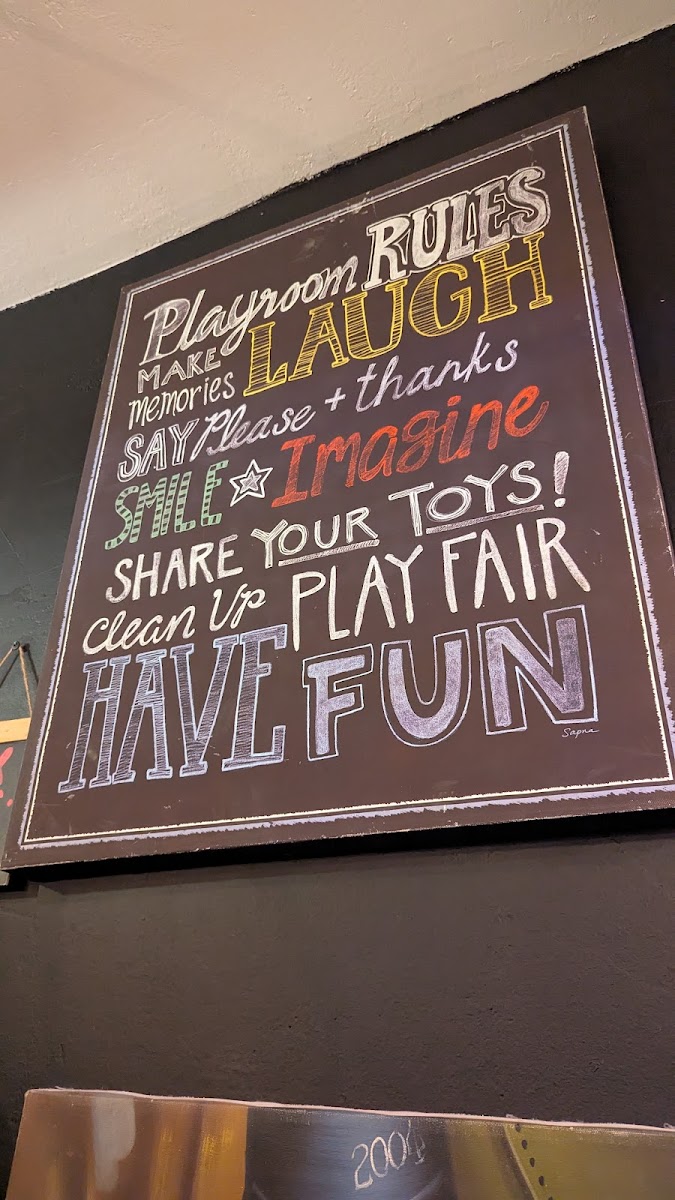 Playroom RULES
MAKE memories LAUGH
SAY Please + thanks
SMILE Imagine
SHARE YOUR TOYS!
Clean Up PLAY FAIR
HAVE FUN
Sapna